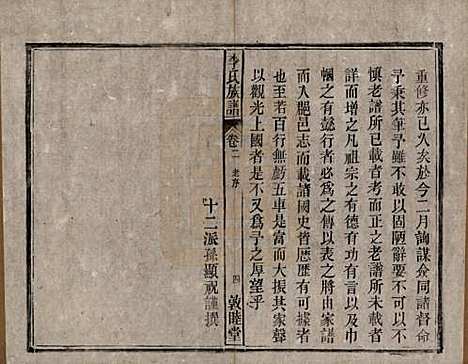 重修亦已久矣於今二月詢謀僉同諸督命
予秉其筆予雖不敢以固陋辭要不可不
慎老譜所已載者考而正之老譜所未載者
詳而增之凡祖宗之有德有功以及巾
幗之有懿行者必為之傳以表之將由家譜
而入郡邑志而載諸國史皆歷歷有可據者
也至若百行無虧五車是富而大振其家聲
以觀光上國者是不又為予之厚望乎
十二派孫顯祝謹撰
李氏族譜
卷二
老序
四
敦睦堂